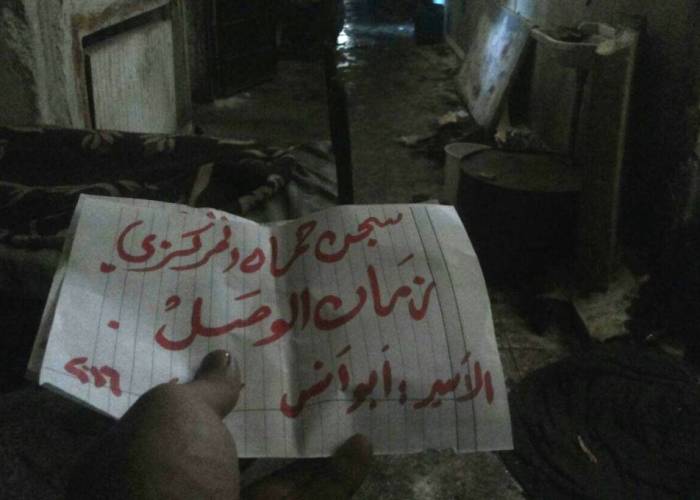 سجن حماه المركزي.
زمان الوصل.
الأسير: أبو أنس
٢٠١٦